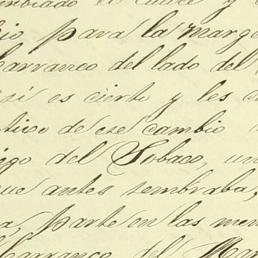 cambiado el cauce y
para la marge
barranco del lado del
sí es cierto y les c
tivo de ese cambio
go del Sobaco, un
que antes sembraba,
a, parte en las me
barranco del